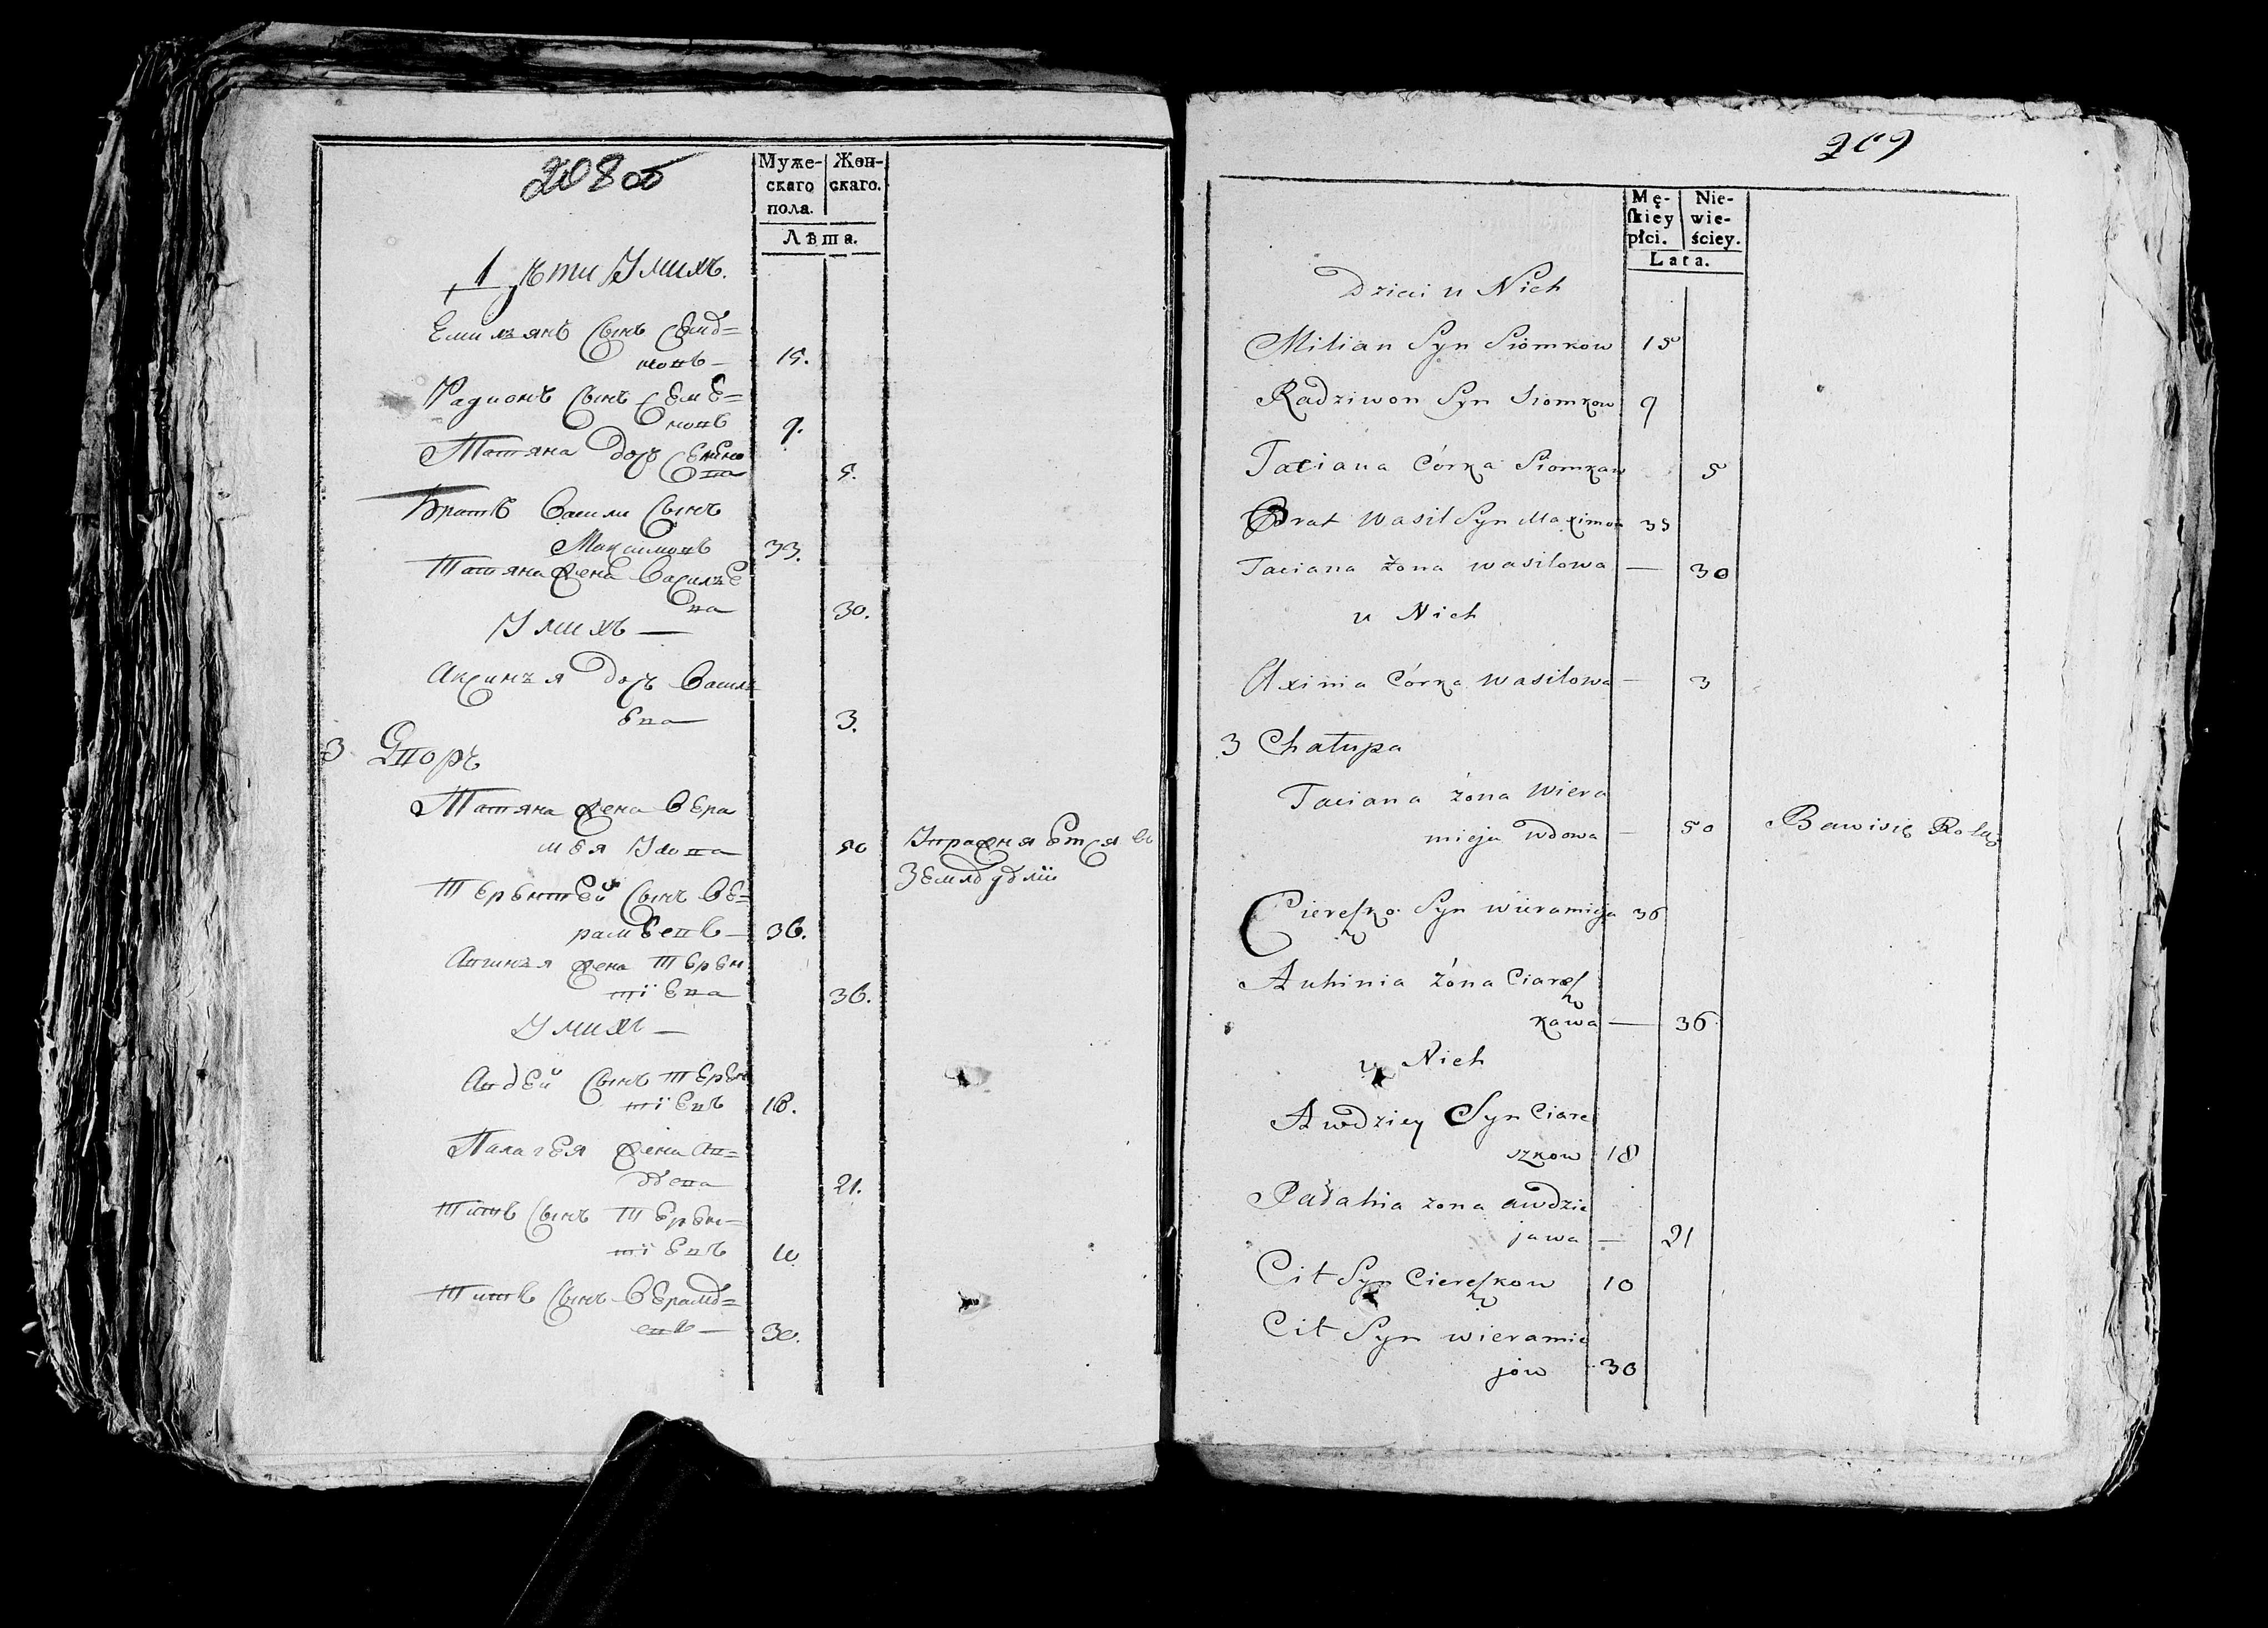 208 об
Муже- Жен-
скаго скаго.
пола.
Лѣта.
Дѣти У нихъ.
Емильянъ Сынъ Семѣ=
новъ — 15.
Радионъ Сынъ Семе=
новъ 9.
Татяна дочь Семено
ва 5.
Братъ Васили Сынъ
Максимовъ 33.
Татяна жена Василье
ва 30.
У нихъ —
Аксинья дочь Василь
ева 3.
3 Дворъ
Татяна жена Вера
мея Удова 50 Упражняется въ
Земледѣлии
Терентей Сынъ Ве=
рамеевъ — 36.
Авгинья жена Терен
тїева 36.
У нихъ —
Авдей Сынъ Терен
тїевъ 18.
Палагея жена Ав=
дѣева 21.
Титъ Сынъ Терен=
тїевъ 10
Титъ Сынъ Верамѣ=
евъ — 30.
209
Mę- Nie-
ſkiey wie-
płci. ściey.
Lata.
Dzieci u Nich
Milian Syn Siomkow 15
Radziwon Syn Siomkow 9
Taciana Córka Siomkaw 5
Brat Wasil Syn Maximow 33
Taciana żona wasilowa — 30
u Nich
Axinia Córka wasilowa — 3
3 Chałupa
Taciana żóna Wiera
mieja wdowa — 50 Bawisię Rolą
Ciereſzko Syn wieramieja 36
Auhinia żóna Ciareſz
kawa — 36
u Nich
Awdziey Syn Ciare
szkow 18
Pałahia żona awdzie
jawa — 21
Cit Syn Ciereſzkow 10
Cit Syn wieramie
jów 30